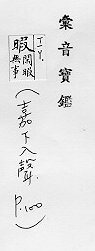 彙音寶鑑
ㄒㄧㄚˊ
暇 閒暇無事
(嘉下入聲. P.100)